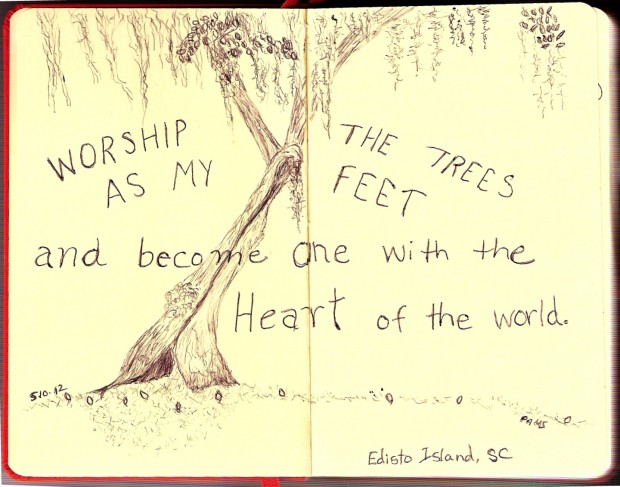 WORSHIP THE TREES
AS MY FEET
and become one with the
Heart of the world.
5.10.12
Edisto Island, SC